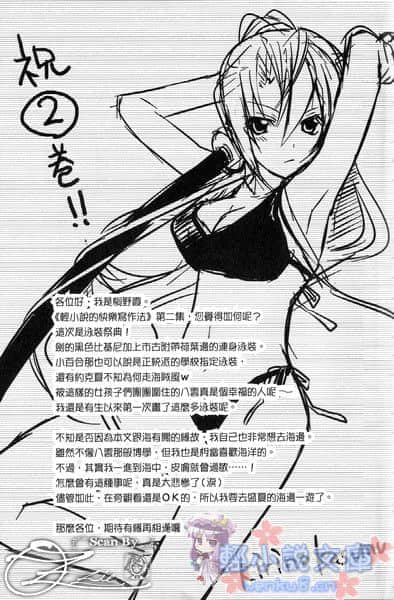 祝
②
巻!!
各位好，我是柳野晝。
《輕小說的快樂寫作法》第二集，您覺得如何呢？
這次是泳裝祭典！
劍的黑色比基尼加上市古附帶荷葉邊的連身泳裝。
小百合那也可以說是正統派的學校指定泳裝，
還有約克夏不知為何走海賊風w
被這樣的女孩子們團團圍住的八雲真是個幸福的人呢～
我還是有生以來第一次畫了這麼多泳裝呢。
不知是否因為本文跟海有關的緣故，我自己也非常想去海邊。
雖然不像八雲那般博學，但我也是相當喜歡海洋的。
不過，其實我一進到海中，皮膚就會過敏……！
怎麼會有這種事呢，真是太悲慘了(淚)
儘管如此，在旁觀看還是OK的，所以我要去盛夏的海邊一遊了。
那麼各位，期待有緣再相逢囉
Scan By
輕小說文庫
wenku8.cn